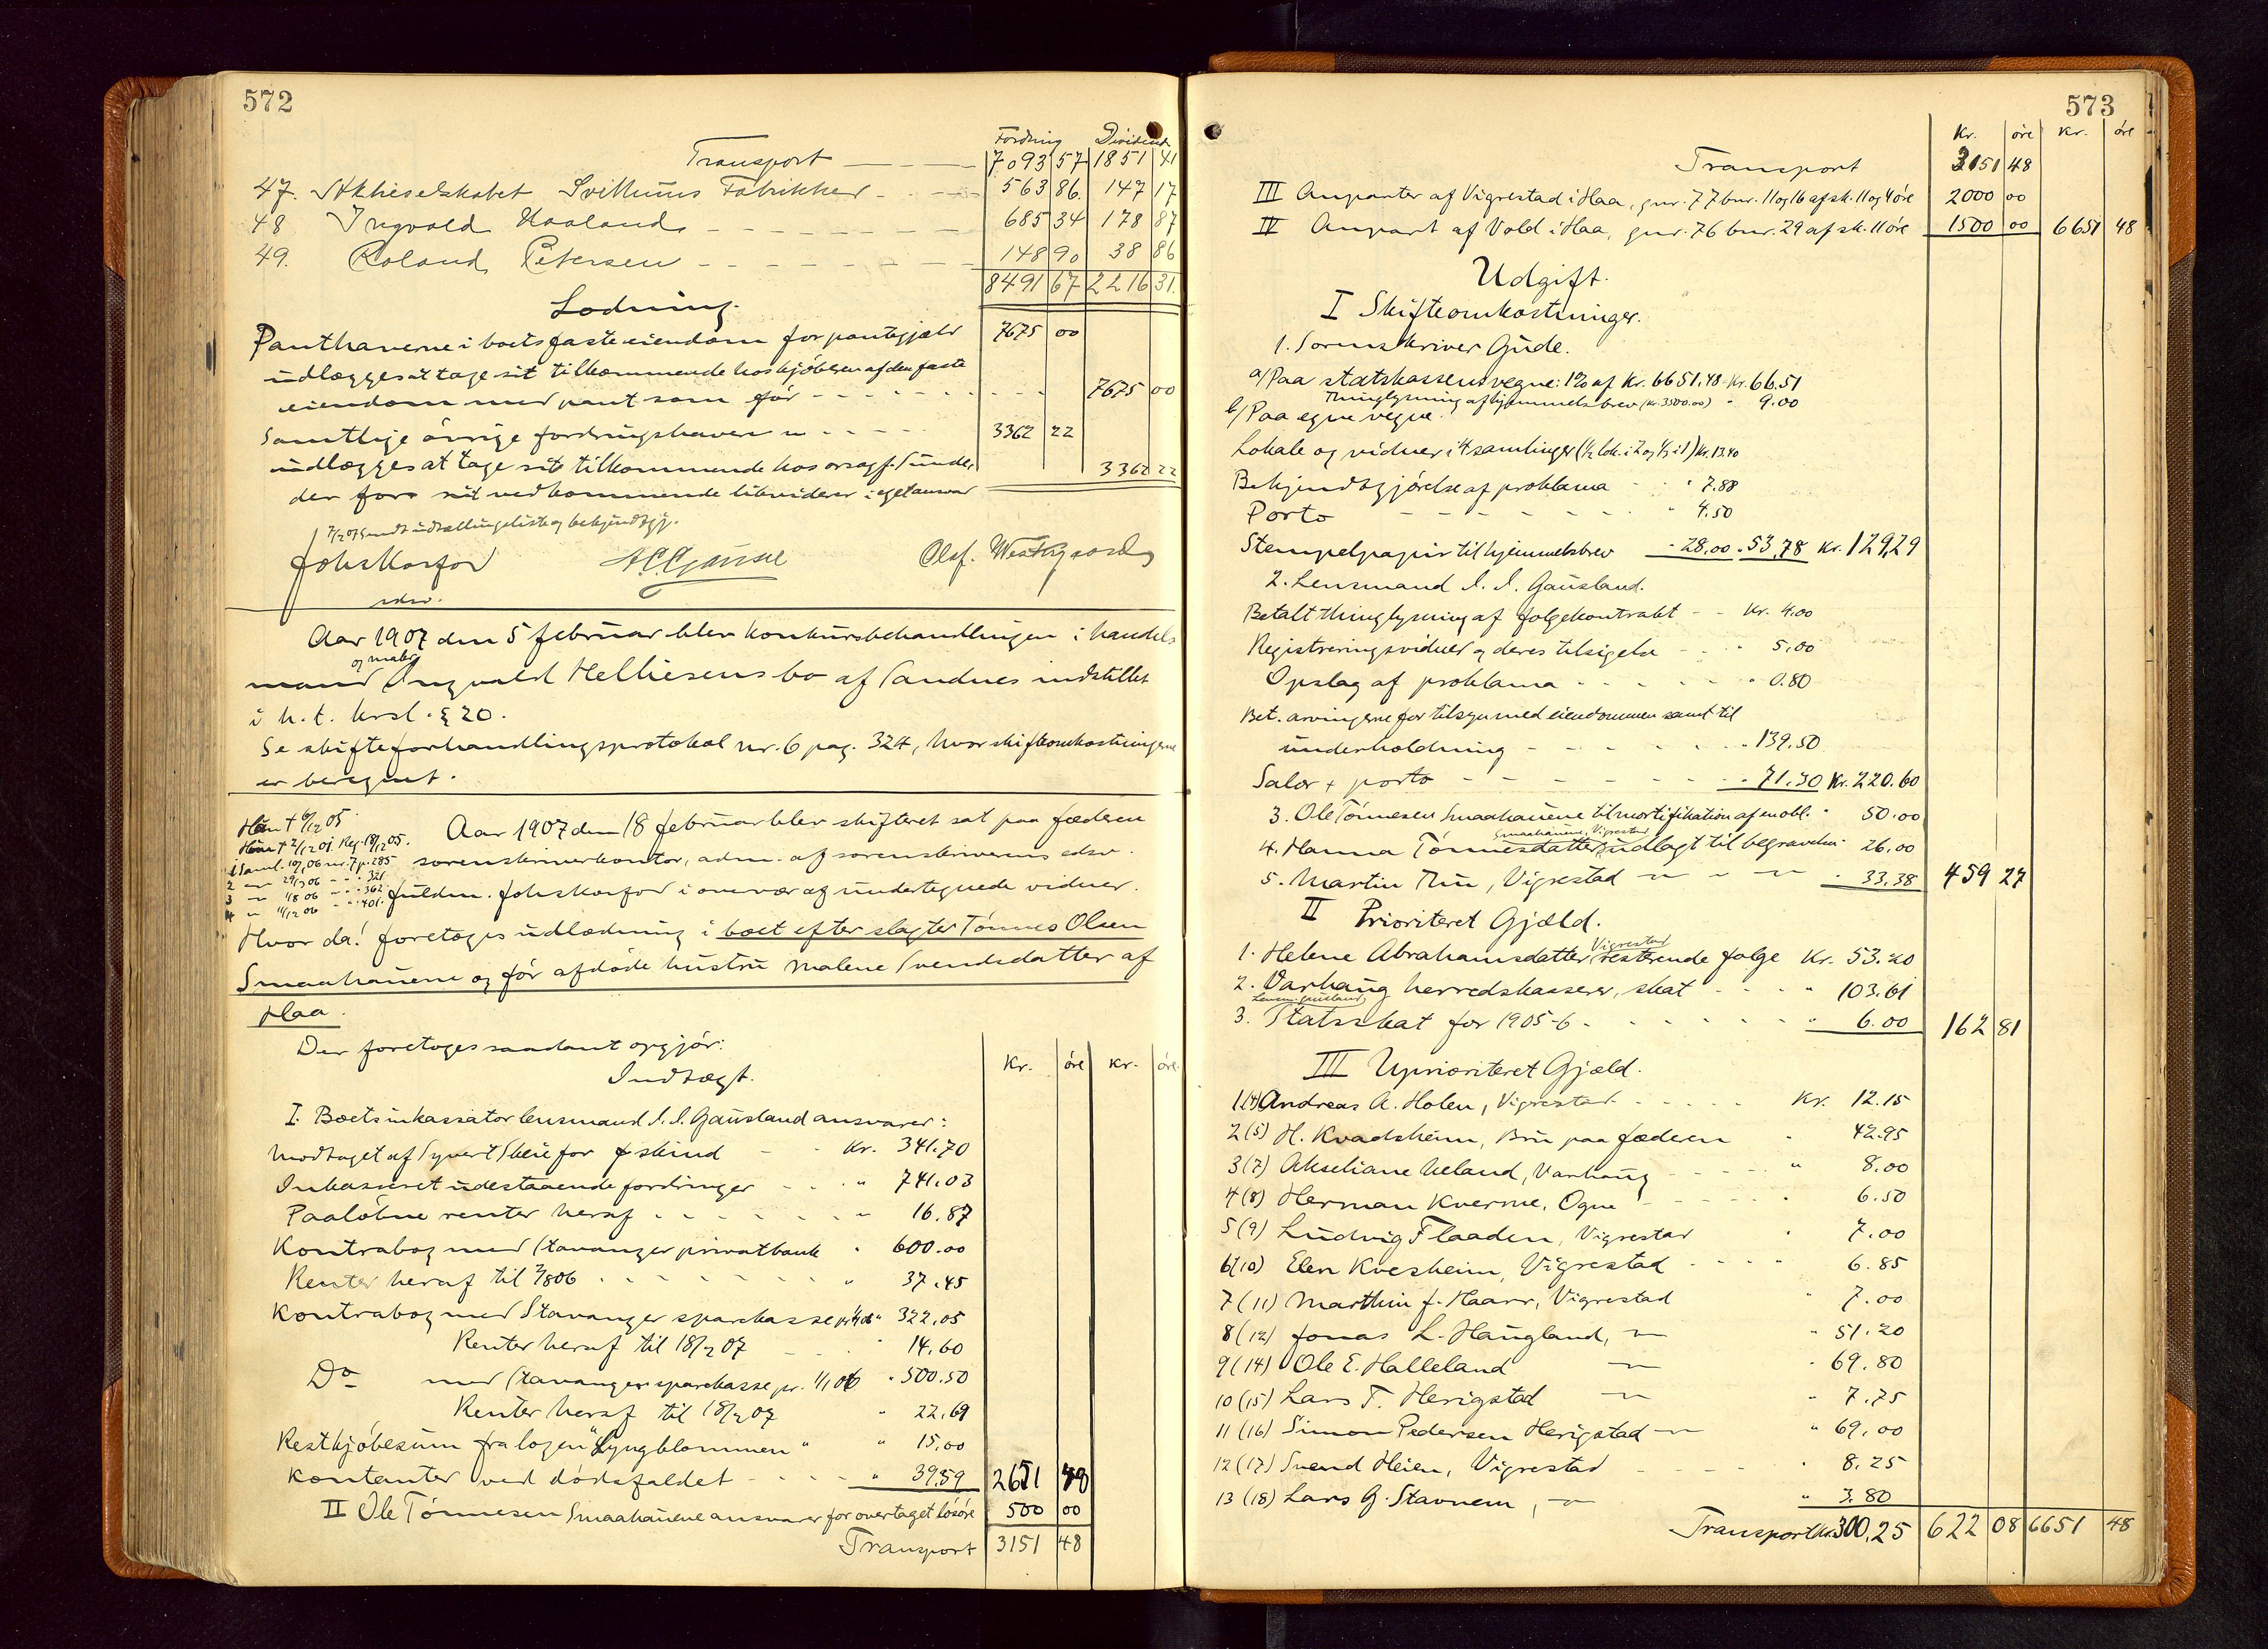 572
Fordring Dividende
Transport 7093 57 1851 41
47. Aktieselskabet Svithuns Fabrikker 563 86 147 17
48 Ingvald Haaland 685 34 178 87
49. Roland Petersen 148 90 38 86
8491 67 2216 31.
Lodning.
Panthaverne i boets faste eiendom for pantegjæld 7675 00
udlægges at tage sit tilkommende hos kjøberen af den faste
eiendom med pant som før 7675 00
Samtlige øvrige fordringshavere 3362 22
udlægges at tage sit tilkommende hos orsagf. Sunde, 3362 22
der for sit vedkommende likviderer i eget ansvar
7/2 07 sendt udtællingsliste og bekjendtgj.
Johs Korfor
Olaf. Westergaard
edsv.
Aar 1907 den 5 februar blev konkursbehandlingen i handels
og maler
mand Ingvald Helliesens bo af Sandnes indstillet
i h. t. krsl. § 20.
Se skifteforhandlingsprotokol nr. 6 pag. 324, hvor skifteomkostningerne
er beregnet.
Aar 1907 den 18 februar blev skifteret sat paa fæderen
sorenskriverkontor, adm. af sorenskriverens edsv.
fuldm. Johs Korfor i overvær af undertegnede vidner.
Hvor da: foretoges udlodning i boet efter slagter Tønnes Olsen
Smaahauene og før afdøde hustru Malene Svendsdatter af
Haa.
Der foretoges saadant opgjør:
Kr. øre Kr. øre.
Indtægt.
I. Boets inkassator lensmand I. I. Gausland ansvarer:
Modtaget af Syvert Skeie for skind Kr. 341.70
Inkasseret udestaaende fordringer " 741.03
Paaløbne renter heraf " 16.87
Kontrabog med Stavanger privatbank " 600.00
Renter heraf til 7/8 06 " 37.45
Kontrabog med Stavanger sparekasse " 322.05
Renter heraf til 18/2 07 " 14.60
Do med Stavanger sparekasse pr. 1/1 06 " 500.50
Renter heraf til 18/2 07 " 22.69
Restkjøbesum fra logen "Lyngblommen" " 15.00
Kontanter ved dødsfaldet " 39.59 2651 48
II Ole Tønnesen Smaahauene ansvarer for overtaget løsøre 500 00
Transport 3151 48
573
Kr. øre Kr. øre
Transport 3151 48
III Anparter af Vigrestad i Haa, gnr. 77 bnr. 11 og 16 af sk. 11 og 4 øre 2000 00
IV Anpart af Vold i Haa, gnr. 76 bnr. 29 af sk. 11 øre 1500 00 6651 48
Udgift.
I Skifteomkostninger.
1. Sorenskriver Gude.
a/ Paa statskassens vegne: 1% af Kr. 6651.48 = Kr. 66.51
Thinglysning af hjemmelsbrev (Kr. 3500.00) " 9.00
b/ Paa egne vegne
Lokale og vidner i 4 samlinger (1/2 lok. i 2 og 1/3 i 1) Kr. 13.40
Bekjendtgjørelse af proklama " 7.88
Porto " 4.50
Stempelpapir til hjemmelsbrev " 28.00 " 53.78 Kr. 129,29
2. Lensmand I. I. Gausland.
Betalt thinglysning af følgekontrakt Kr. 4.00
Registreringsvidner og deres tilsigelse " 5.00
Opslag af proklama " 0.80
Bet. arvingerne for tilsyn med eiendommen samt til
underholdning " 139.50
Salær & porto " 71.30 Kr. 220.60
3. Ole Tønnesen Smaahauene til mortifikation af en obl. " 50.00
Smaahauene, Vigrestad
4. Hanna Tønnesdatter, udlagt til begravelse " 26.00
5. Martin Thu, Vigrestad " 33.38 459 27
II Prioriteret Gjæld.
Vigrestad
1. Helene Abrahamsdatter, resterende følge Kr. 53.20
2. Varhaug herredskasserer, skat " 103.61
Lensm. Gausland
3. Statsskat for 1905-6 " 6.00 162 81
III Uprioriteret Gjæld.
1(4) Andreas A. Holen, Vigrestad Kr. 12.15
2(5) H. Kvadsheim, Bru paa fæderen " 42.95
3(7) Akseliane Ueland, Varhaug " 8.00
4(8) Herman Kverme, Ogne " 6.50
5(9) Ludvig Flaaden, Vigrestad " 7.00
6(10) Elen Kvesheim, Vigrestad " 6.85
7(11) Marthin J. Haarr, Vigrestad " 7.00
8(12) Jonas L. Haugland, " 51.20
9(14) Ole E. Halleland " 69.80
10(15) Lars T. Herigstad " 7.75
11(16) Simon Pedersen Herigstad " 69,00
12(17) Svend Heien, Vigrestad " 8.25
13(18) Lars G. Stavnem, " 3.80
Transport Kr. 300,25 622 08 6651 48